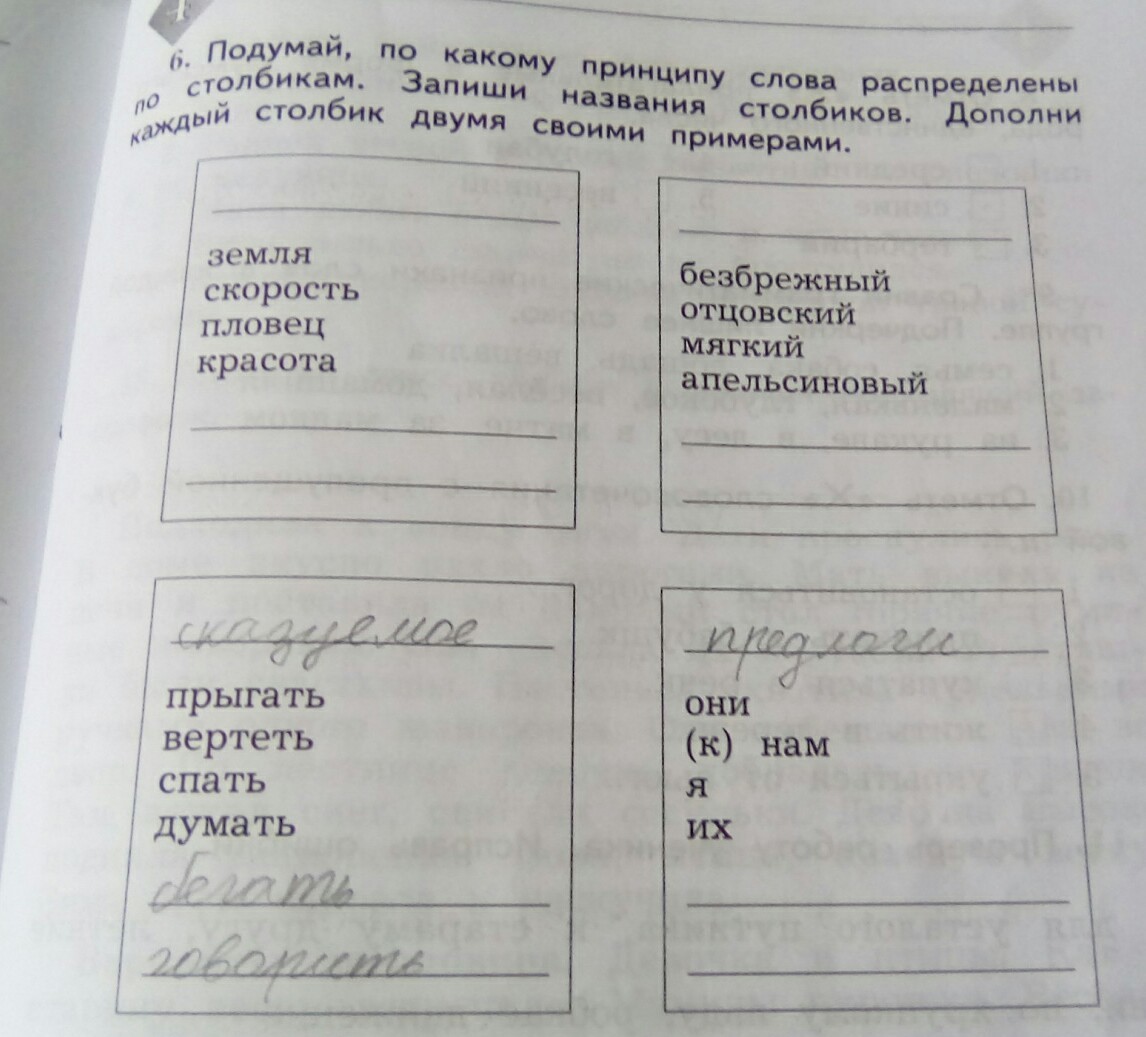 6. Подумай, по какому принципу слова распределены
по столбикам. Запиши названия столбиков. Дополни
каждый столбик двумя своими примерами.
земля
скорость
пловец
красота
безбрежный
отцовский
мягкий
апельсиновый
сказуемое
прыгать
вертеть
спать
думать
бегать
говорить
предлоги
они
(к) нам
я
их